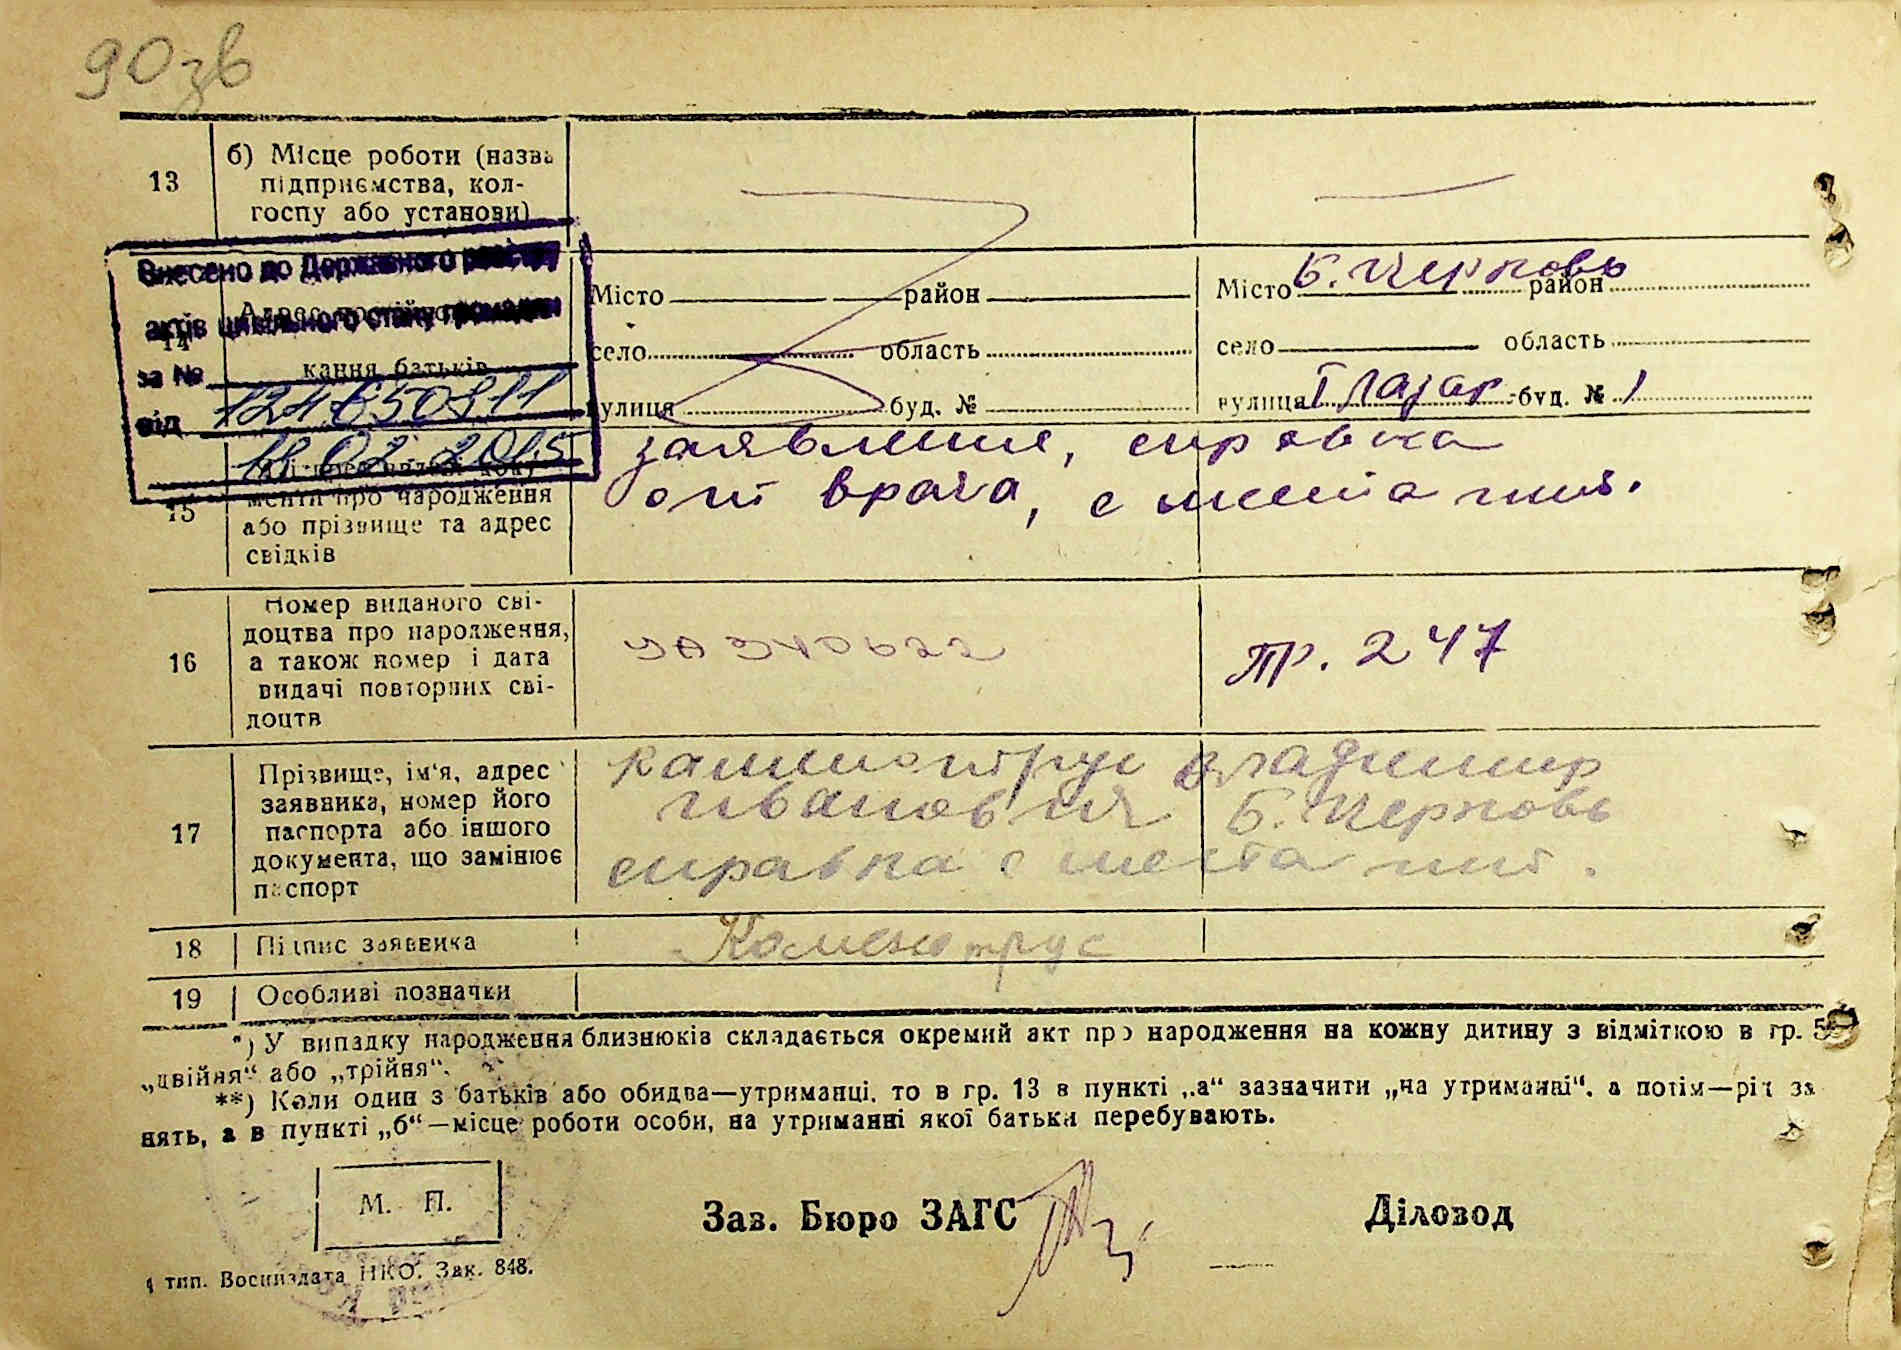 90зв
13
б) Місце роботи (назва
підприємства, кол-
госпу або установи)
Внесено до Державного реєстру
актів цивільного стану громадян
за №
від
18 02 2015
14
кання батьків
Місто район
село область
вулиця буд. №
Місто Б. Церковь район
село область
вулиця буд. № 1
15
менти про народження
або прізвище та адрес
свідків
заявление, справка
от врача, с места жит.
16
Номер виданого сві-
доцтва про народження,
а також номер і дата
видачі повторних сві-
доцтв
пр. 247
17
Прізвище, ім'я, адрес
заявника, номер його
паспорта або іншого
документа, що замінює
паспорт
Владимир
Иванович Б. Церковь
справка с места жит.
18
Підпис заявника
19
Особливі позначки
*) У випадку народження близнюків складається окремий акт про народження на кожну дитину з відміткою в гр. 5
„двійня“ або „трійня“.
**) Коли один з батьків або обидва—утриманці, то в гр. 13 в пункті „а“ зазначити „на утриманні“, а потім—рід за
нять, а в пункті „б“—місце роботи особи, на утриманні якої батьки перебувають.
М. П.
Зав. Бюро ЗАГС
Діловод
тип. Воениздата НКО. Зак. 848.